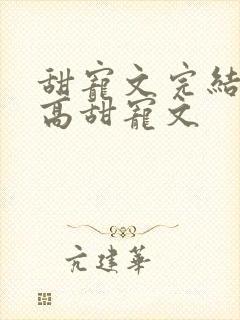 甜寵文完結
高甜寵文
亢建華